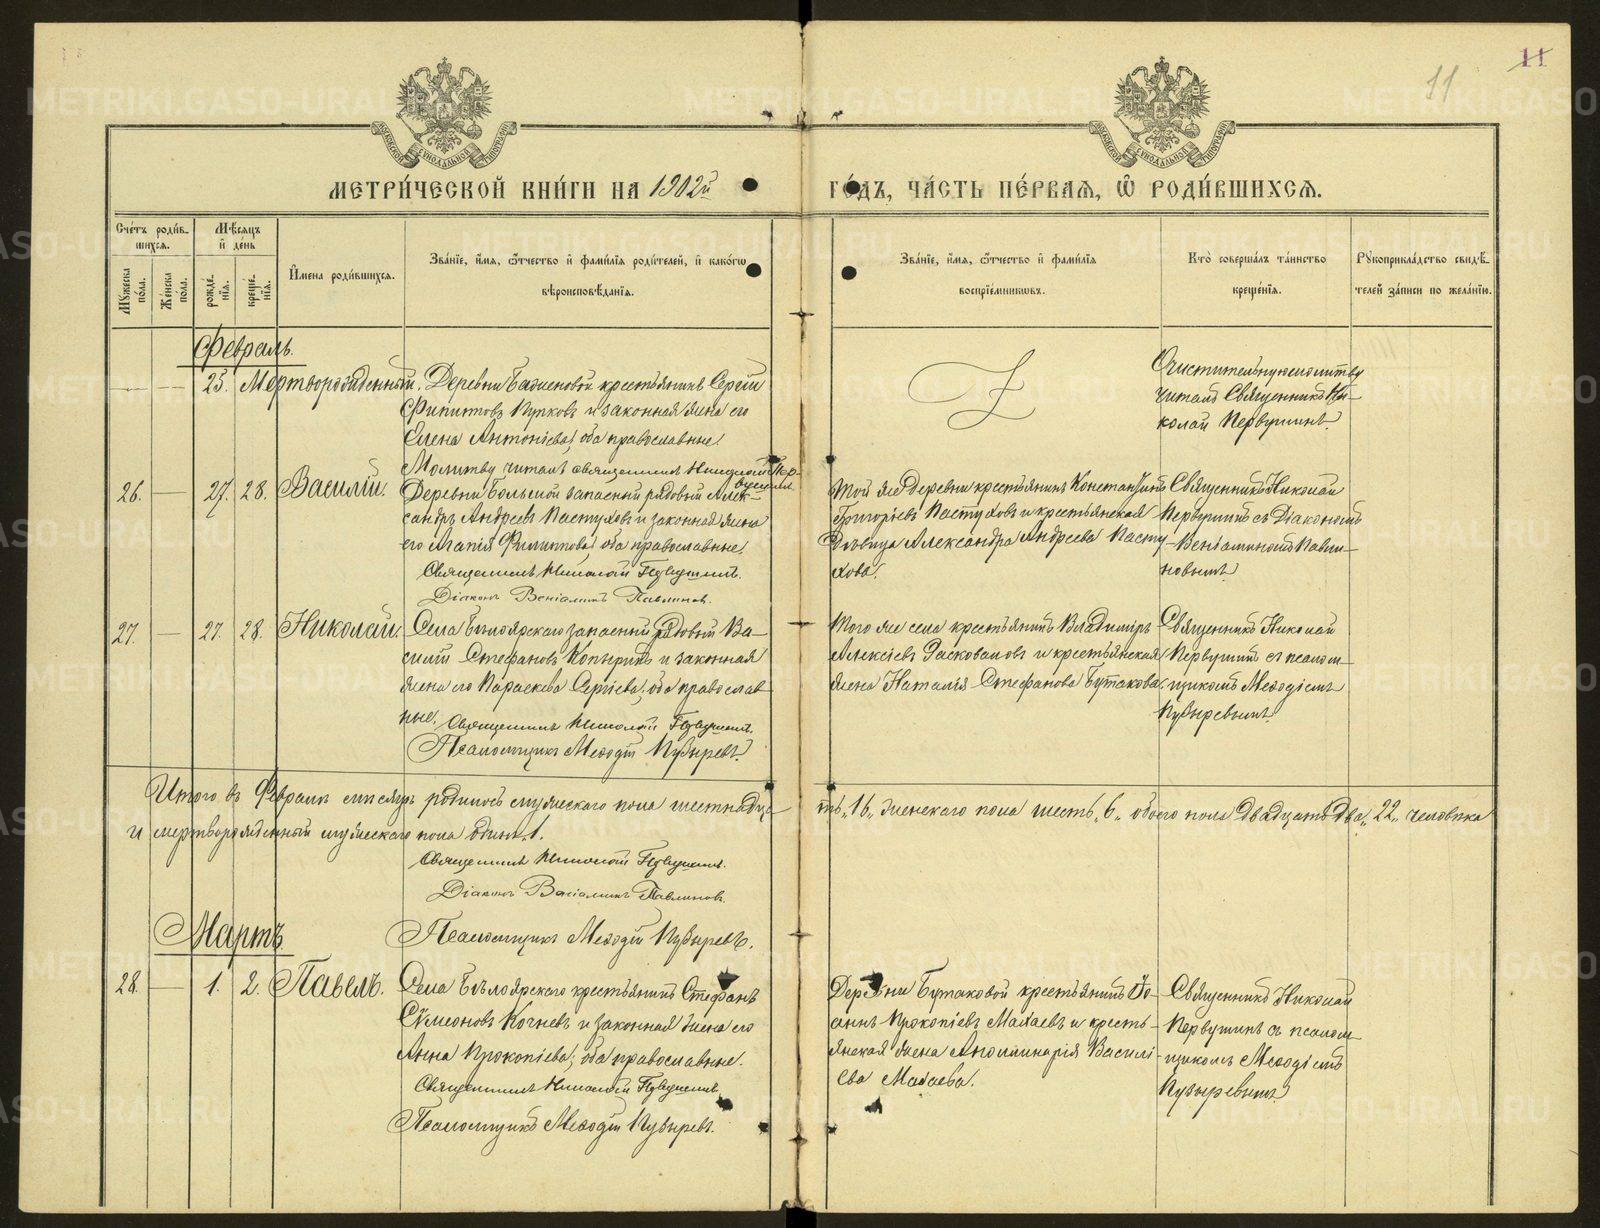 11
11
МОСКОВСКОЙ СѴНОДАЛЬНОЙ ТИПОГРАФІИ
МОСКОВСКОЙ СѴНОДАЛЬНОЙ ТИПОГРАФІИ
МЕТРИ́ЧЕСКОЙ КНИ́ГИ НА 1902й ГО́ДЪ, ЧА́СТЬ ПЕ́РВАЯ, Ѽ РОДИ́ВШИХСЯ.
Счетъ роди́в-
шихся.
Мѣсяцъ
и́ де́нь
Мꙋжеска
по́ла.
Же́нска
по́ла.
рожде-
нїя.
креще-
нїя.
И҆мена роди́вшихся.
Зва́нїе, и҆́мя, ѻ҆́тчество и҆ фами́лїя роди́телей, и҆ како́гѡ
вѣроисповѣ́данїя.
Зва́нїе, и҆́мя, ѻ҆́тчество и҆ фами́лїя
воспрїе́мникѡвъ.
Кто̀ соверша́лъ та́инство
креще́нїя.
Рꙋкоприкла́дство свидѣ́-
телей за́писи по жела́нїю.
Февраль.
— — 25. Мертворожденный.
Деревни крестьянинъ Сергій
Филиптовъ Пупковъ и законная жена его
Елена Антоніева, оба православные.
Молитву читалъ священникъ Николай Пер-
вушинъ
Очистительную молитву
читалъ Священникъ Ни-
колай Первушинъ.
26. — 27. 28. Василій.
Деревни Большой запасный рядовый Алек-
сандръ Андреевъ Пастуховъ и законная жена
его Агапія Филиппова, оба православные.
Священникъ Николай Первушинъ.
Діаконъ Веніаминъ Павлиновъ.
Той же деревни крестьянинъ Константинъ
Григорьевъ Пастуховъ и крестьянская
дѣвица Александра Андреева Пасту-
хова.
Священникъ Николай
Первушинъ съ Діакономъ
Веніаминомъ Павли-
новымъ.
27. — 27. 28. Николай.
Села Бѣлоярскаго запасный рядовый Ва-
силій Стефановъ Копыринъ и законная
жена его Параскева Сергіева, оба православ-
ные. Священникъ Николай Первушинъ.
Псаломщикъ Меѳодій Пузыревъ.
Того же села крестьянинъ Владиміръ
Алексіевъ Расковаловъ и крестьянская
жена Наталья Стефанова Бутакова.
Священникъ Николай
Первушинъ съ псалом-
щикомъ Меѳодіемъ
Пузыревымъ.
Итого въ Февралѣ мѣсяцѣ родилось мужескаго пола шестнадца-
ть „16„ женскаго пола шесть „6„ обоего пола двадцать два „22„ человѣка
и мертворожденный мужескаго пола одинъ „1.
Священникъ Николай Первушинъ.
Діаконъ Веніаминъ Павлиновъ.
Псаломщикъ Меѳодій Пузыревъ.
Мартъ.
28. — 1. 2. Павелъ.
Села Бѣлоярскаго крестьянинъ Стефанъ
Сѵмеоновъ Кочневъ и законная жена его
Анна Прокопіева, оба православные.
Священникъ Николай Первушинъ.
Псаломщикъ Меѳодій Пузыревъ.
Деревни Бутаковой крестьянинъ Іо-
аннъ Прокопіевъ Махаевъ и кресть-
янская жена Аполлинарія Василі-
ева Махаева.
Священникъ Николай
Первушинъ съ псалом-
щикомъ Меѳодіемъ
Пузыревымъ.
METRIKI.GASO-URAL.RU